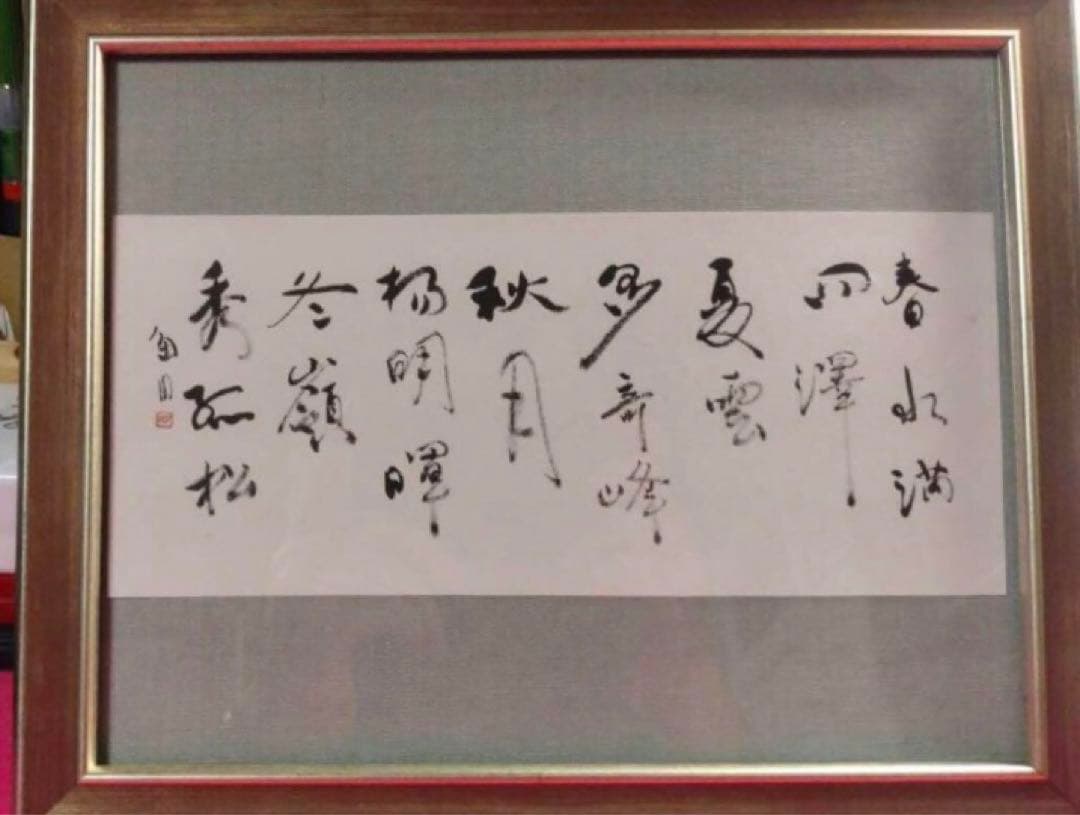 春水满
四澤
夏雲
多奇峰
秋月
杨明暉
冬嶺
秀孤松